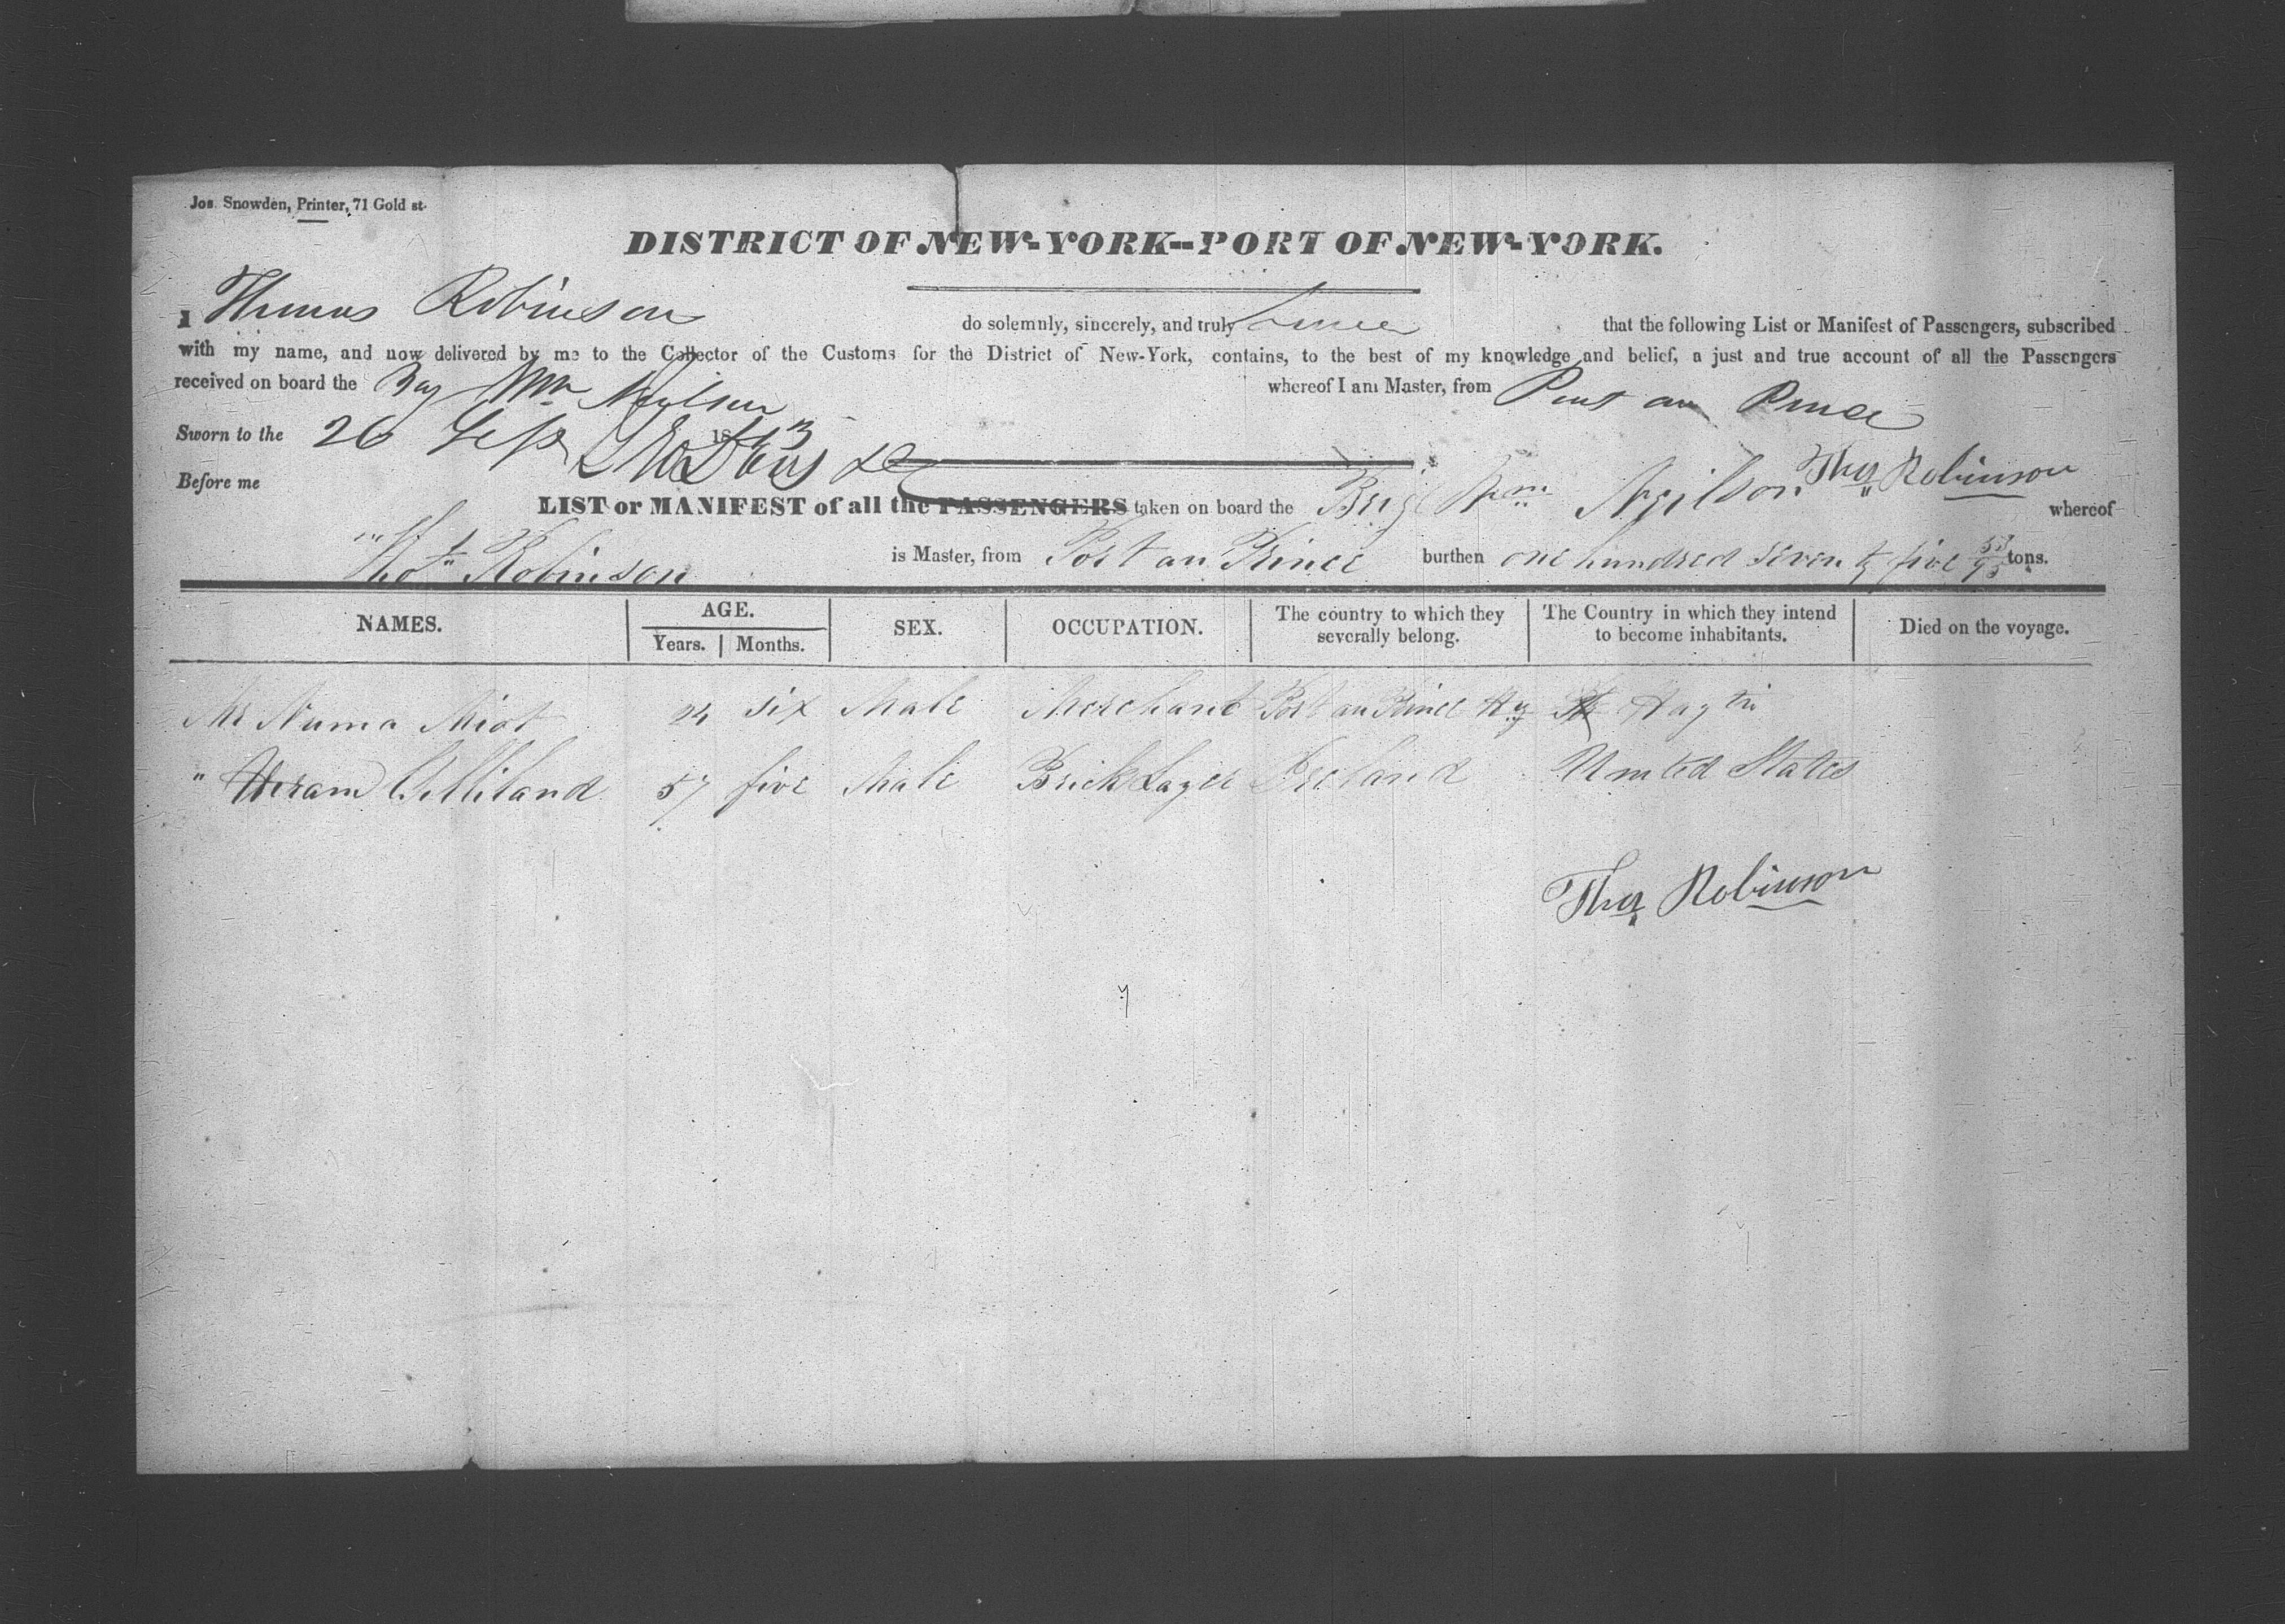 Jos. Snowden, Printer, 71 Gold st.
DISTRICT OF NEW-YORK--PORT OF NEW-YORK.
I Thomas Robinson do solemnly, sincerely, and truly swear that the following List or Manifest of Passengers, subscribed
with my name, and now delivered by me to the Collector of the Customs for the District of New-York, contains, to the best of my knowledge and belief, a just and true account of all the Passengers
received on board the Brig Wm Neilson whereof I am Master, from Port au Prince
Sworn to the 26 Sep 1843
Thos Robinson
Before me
LIST or MANIFEST of all the PASSENGERS taken on board the Brig Wm Neilson whereof
Thos Robinson is Master, from Port au Prince burthen one hundred seventy five tons.
NAMES. AGE. SEX. OCCUPATION. The country to which they severally belong. The Country in which they intend to become inhabitants. Died on the voyage.
Years. Months.
Mr Numa Miot 24 six Male Merchant Port au Prince Hy Hayti
" Hiram Gilliland 57 five Male Brick Layer Ireland United States
Thos Robinson